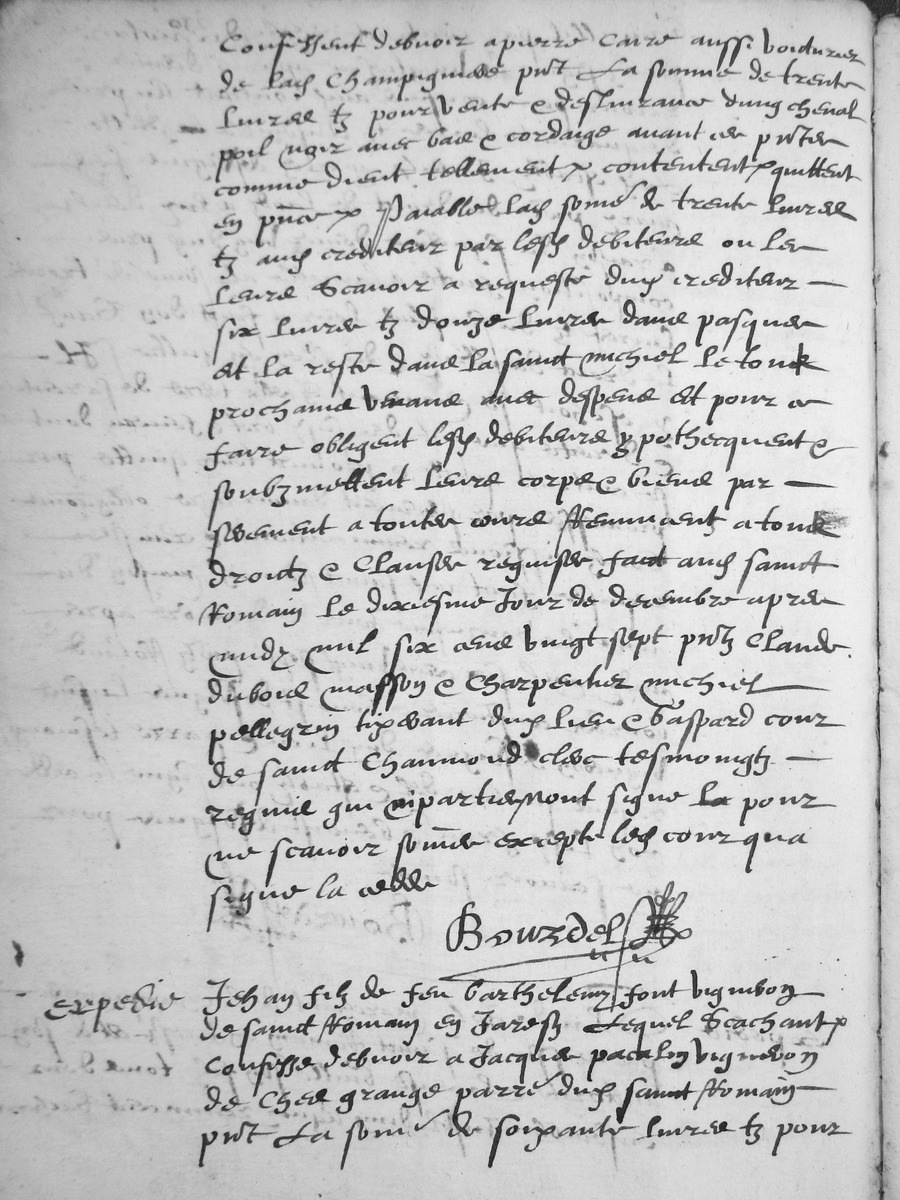 Confessent debvoir a pierre Carre aussi voidurier
de lad Champigniere pnt La somme de trente
livres tz pour vente & deslivrance dung cheval
poil noir avec bas & cordaige avant ces pntes
comme dient tellement & contentent & quittent
en pnce & Paiable lad some de trente livres
tz aud crediteur par lesd debiteurs ou les
leurs Scavoir a requeste dud crediteur
six livres tz douze livres dans pasques
et la reste dans la sainct michiel le tout
prochains venans avec despens et pour ce
faire obligent lesd debiteurs ypothecquent &
soubzmettent leurs corps & biens par
serement a toutes cours Renuncent a tous
droitz & Clauses requises faict aud sainct
Romain le dixiesme Jour de decembre apres
midy mil six cens vingt sept pntz Claude
dubois masson & Charpentier michiel
pellegrin tixerant dud lieu & Gaspard cour
de sainct Chaumond clerc tesmoingtz
requis qui ni parties nont signe La pour
ne scavoir somes excepte led cour qua
signe la cedde
Bourdel
expedie
Jehan filz de feu barthelemy font vigneron
de sainct Romain en Jarestz Lequel Scachant &
Confesse debvoir a Jacques pacalin vigneron
de Ches grange parre dud sainct Romain
pnt La some de soixante livres tz pour